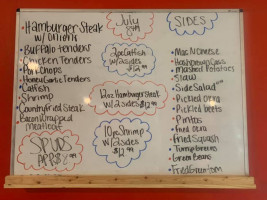 Hamburger Steak
w/ onions
Buffalo tenders
Chicken Tenders
Pork Chops
Honey Garlic Tenders
Catfish
Shrimp
Country fried Steak
Bacon Wrapped
Meatloaf
SPUDS
July
2pc Catfish
w/ 2 sides
12oz Hamburger Steak
w/ 2 sides $12.99
10pc Shrimp
w/ 2 sides
$12.99
SIDES
Mac N Cheese
Mashed Potatoes
Slaw
Side Salad
Pickled Okra
Pickled beets
Pintos
Fried Okra
Fried Squash
Turnip Greens
Green Beans
Fried Green Tom